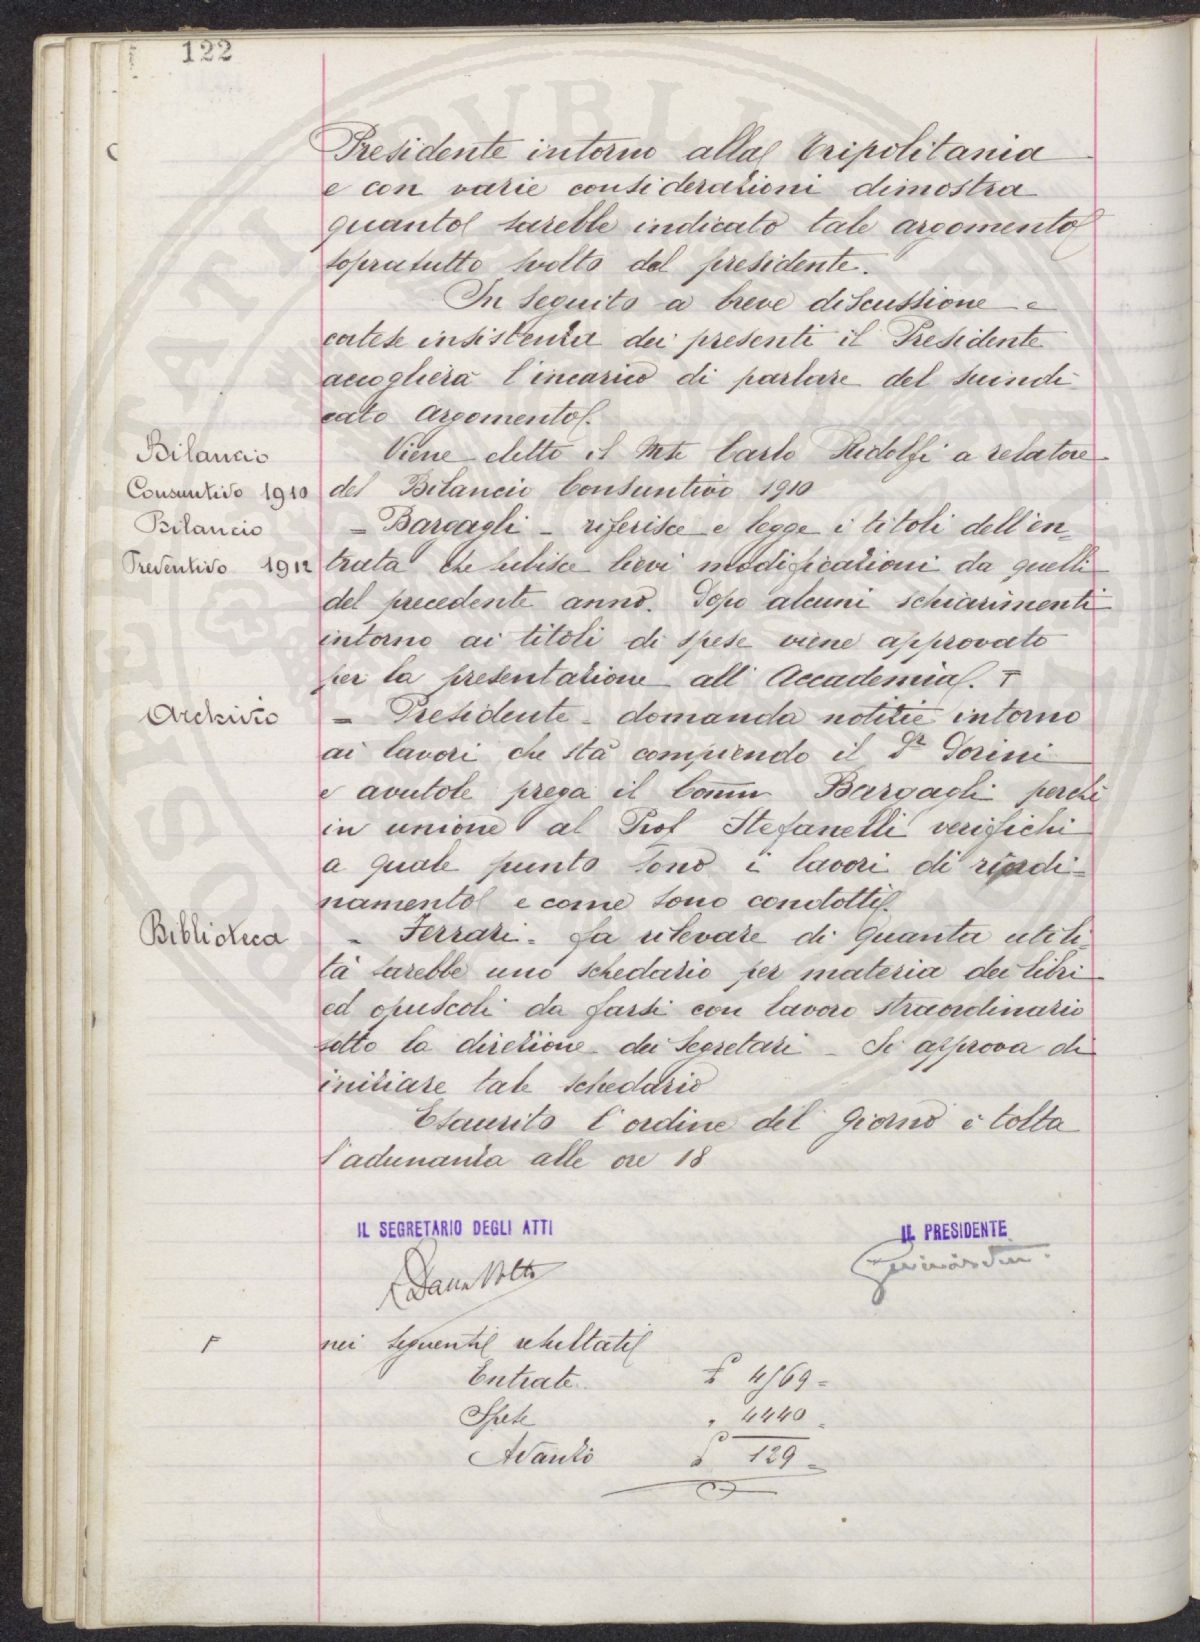 122
Presidente intorno alla Tripolitania
e con varie considerazioni dimostra
quanto sarebbe indicato tale argomento
sopratutto svolto dal presidente.
In seguito a breve discussione e
cortese insistenza dei presenti il Presidente
accoglierà l'incarico di parlare del suindi
cato argomento.
Bilancio
Consuntivo 1910
Viene eletto il Mse Carlo Ridolfi a relatore
del Bilancio Consuntivo 1910
Bilancio
Preventivo 1912
= Bargagli - riferisce e legge i titoli dell'en=
trata che subisce lievi modificazioni da quelli
del precedente anno. Dopo alcuni schiarimenti
intorno ai titoli di spese viene approvato
per la presentazione all'Accademia. Γ
Archivio
= Presidente - domanda notizie intorno
ai lavori che stà compiendo il Dr Dorini
e avutole prega il Comm Bargagli perchè
in unione al Prof Stefanelli verifichi
a quale punto sono i lavori di riordi=
namento e come sono condotti.
Biblioteca
- Ferrari - fa rilevare di quanta utili=
tà sarebbe uno schedario per materia dei libri
ed opuscoli da farsi con lavoro straordinario
sotto la direzione dei Segretari - Si approva di
iniziare tale schedario
Esaurito l'ordine del giorno è tolta
l'adunanza alle ore 18
IL SEGRETARIO DEGLI ATTI
IL PRESIDENTE
Γ nei seguenti resultati
Entrate £ 4569=
Spese " 4440=
Avanzo £ 129=